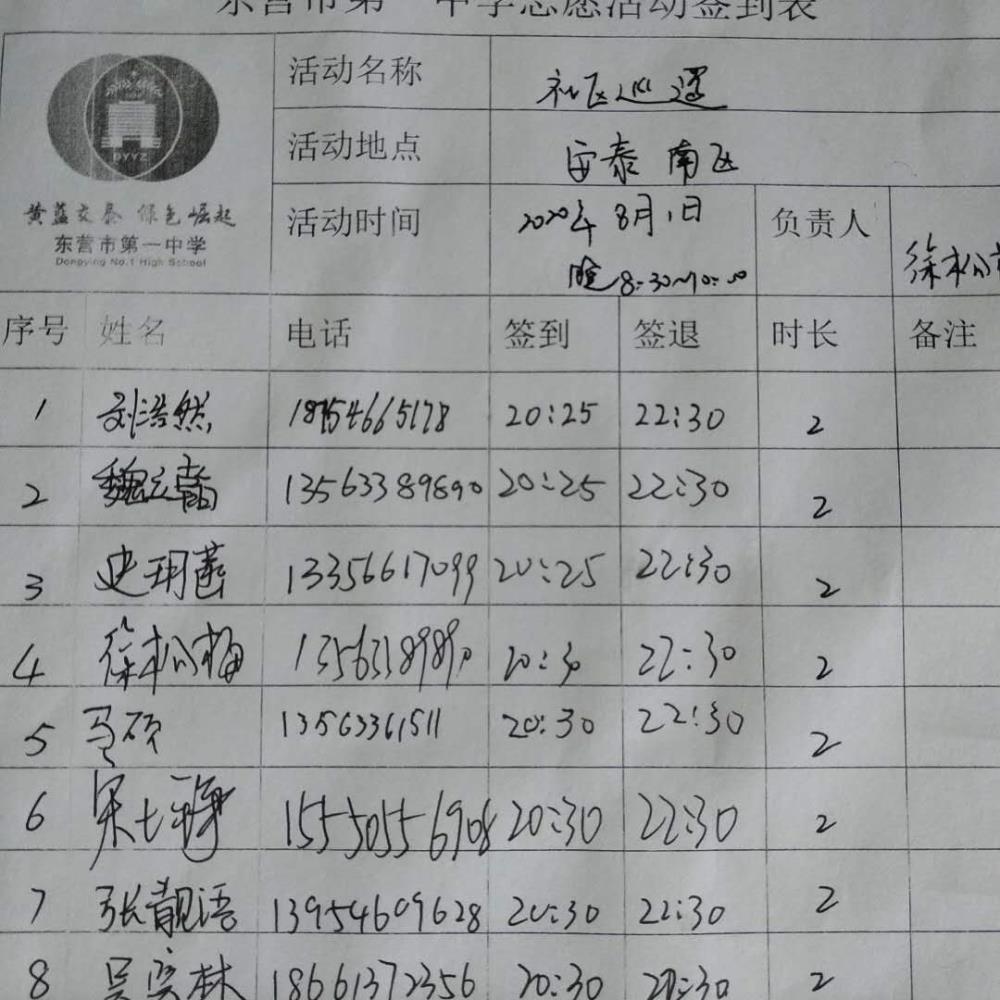 东营市第一中学志愿活动签到表
DYYZ
黄蓝交泰 绿色崛起
东营市第一中学
Dongying No.1 High School
活动名称 社区巡逻
活动地点 安泰 南区
活动时间 2020年8月1日 负责人 徐松梅
晚8:30~10:30
序号 姓名 电话 签到 签退 时长 备注
1 刘浩然 18754665178 20:25 22:30 2
2 魏 13563389890 20:25 22:30 2
3 史玥 13356617099 20:25 22:30 2
4 徐松梅 13563389890 20:30 22:30 2
5 马硕 13563361511 20:30 22:30 2
6 15550556908 20:30 22:30 2
7 张靓语 13954609628 20:30 22:30 2
8 吴奕林 18661372356 20:30 22:30 2